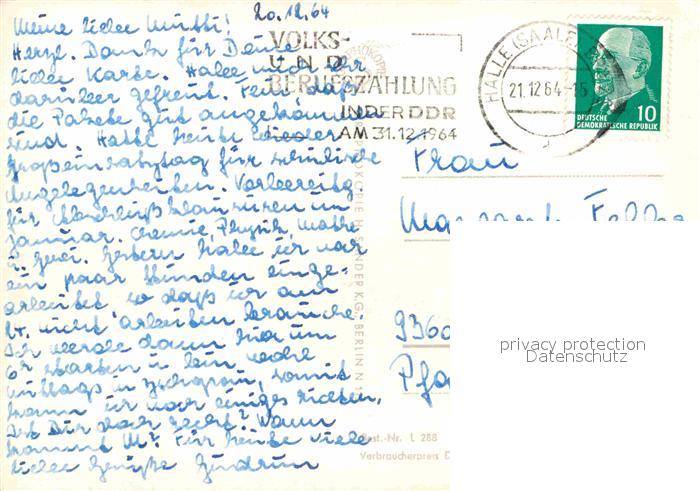 20.12.64
Meine liebe Mutti!
Herzl. Dank für Deine
liebe Karte. Habe mich sehr
darüber gefreut. Fein, daß
die Pakete gut angekommen
sind. Hatte heute wieder
Großeinsatztag für schulische
Angelegenheiten. Vorbereitg.
für Abschlußklausuren im
Januar. Chemie, Physik, Mathe
Gestern habe ich nur
ein paar Stunden einge-
arbeitet so daß ich am
24. nicht arbeiten brauche.
Ich werde dann hier um
6h starten u. bin
mittags in Zschopau, somit
kann ich noch einiges richten.
Ist Dir doch recht? Wann
kommt M? Für heute viele
liebe Grüße Gudrun
VOLKS-
UND
BERUFSZÄHLUNG
IN DER DDR
AM 31.12.1964
HALLE (SAALE)
21.12.64-15
DEUTSCHE
DEMOKRATISCHE REPUBLIK
10
Frau
Margarete
9360
BERLIN N
Best.-Nr. L 288
Verbraucherpreis D
privacy protection
Datenschutz